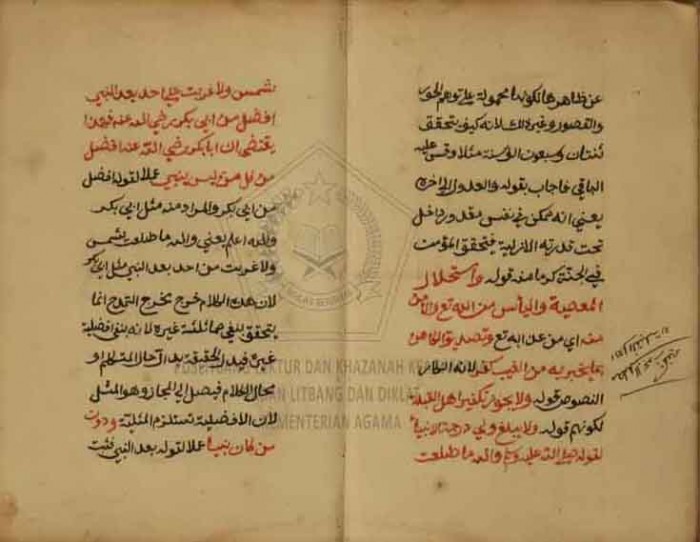 عن ظاهرها لكونها محمولة على توهم الحور
والقصور وغير ذلك لانه كيف يتحقق
ثنتان وسبعون الف سنة مثلا وقس عليه
الباقي فاجاب بقوله والعدول الى اخره
يعني انه ممكن في نفس مقدور داخل
تحت قدرته الازلية فيتحقق المؤمن
في الجنة كرما منه قوله واستحلال
المعصية واليأس من الله تع والامن
منه اي من عذابه تع وتصديق الكاهن
بما يخبر به من الغيب كفر لانه انكار
النصوص قوله ولا يجوز تكفير اهل القبلة
لكونهم قوله ولا يبلغ ولي درجة الانبيا
لقوله صلى الله عليه وسلم والله ما طلعت
شمس ولا غربت على احد بعد النبي
افضل من ابي بكر رضي الله عنه فهذا
يقتضي ان ابا بكر رضي الله عنه افضل
من كل من ليس بنبي عملا لقوله افضل
من ابي بكر والمراد منه مثل ابي بكر
والله اعلم يعني والله ما طلعت شمس
ولا غربت من احد بعد النبي مثل ابي بكر
لان هذا الكلام خرج مخرج التمدح انما
يتحقق بنفي مماثلة غيره لانه بنفي افضلية
غيره فيدل الحقيقة بدلالة حال المتكلم او
محال الكلام فيصل الى المجاز وهو المثل
لان الافضلية تستلزم المثلية ودون
من كان نبيا عملا لقوله بعد النبي فثبت
PUSLITBANG LEKTUR DAN KHAZANAH KEAGAMAAN
BADAN LITBANG DAN DIKLAT
KEMENTERIAN AGAMA